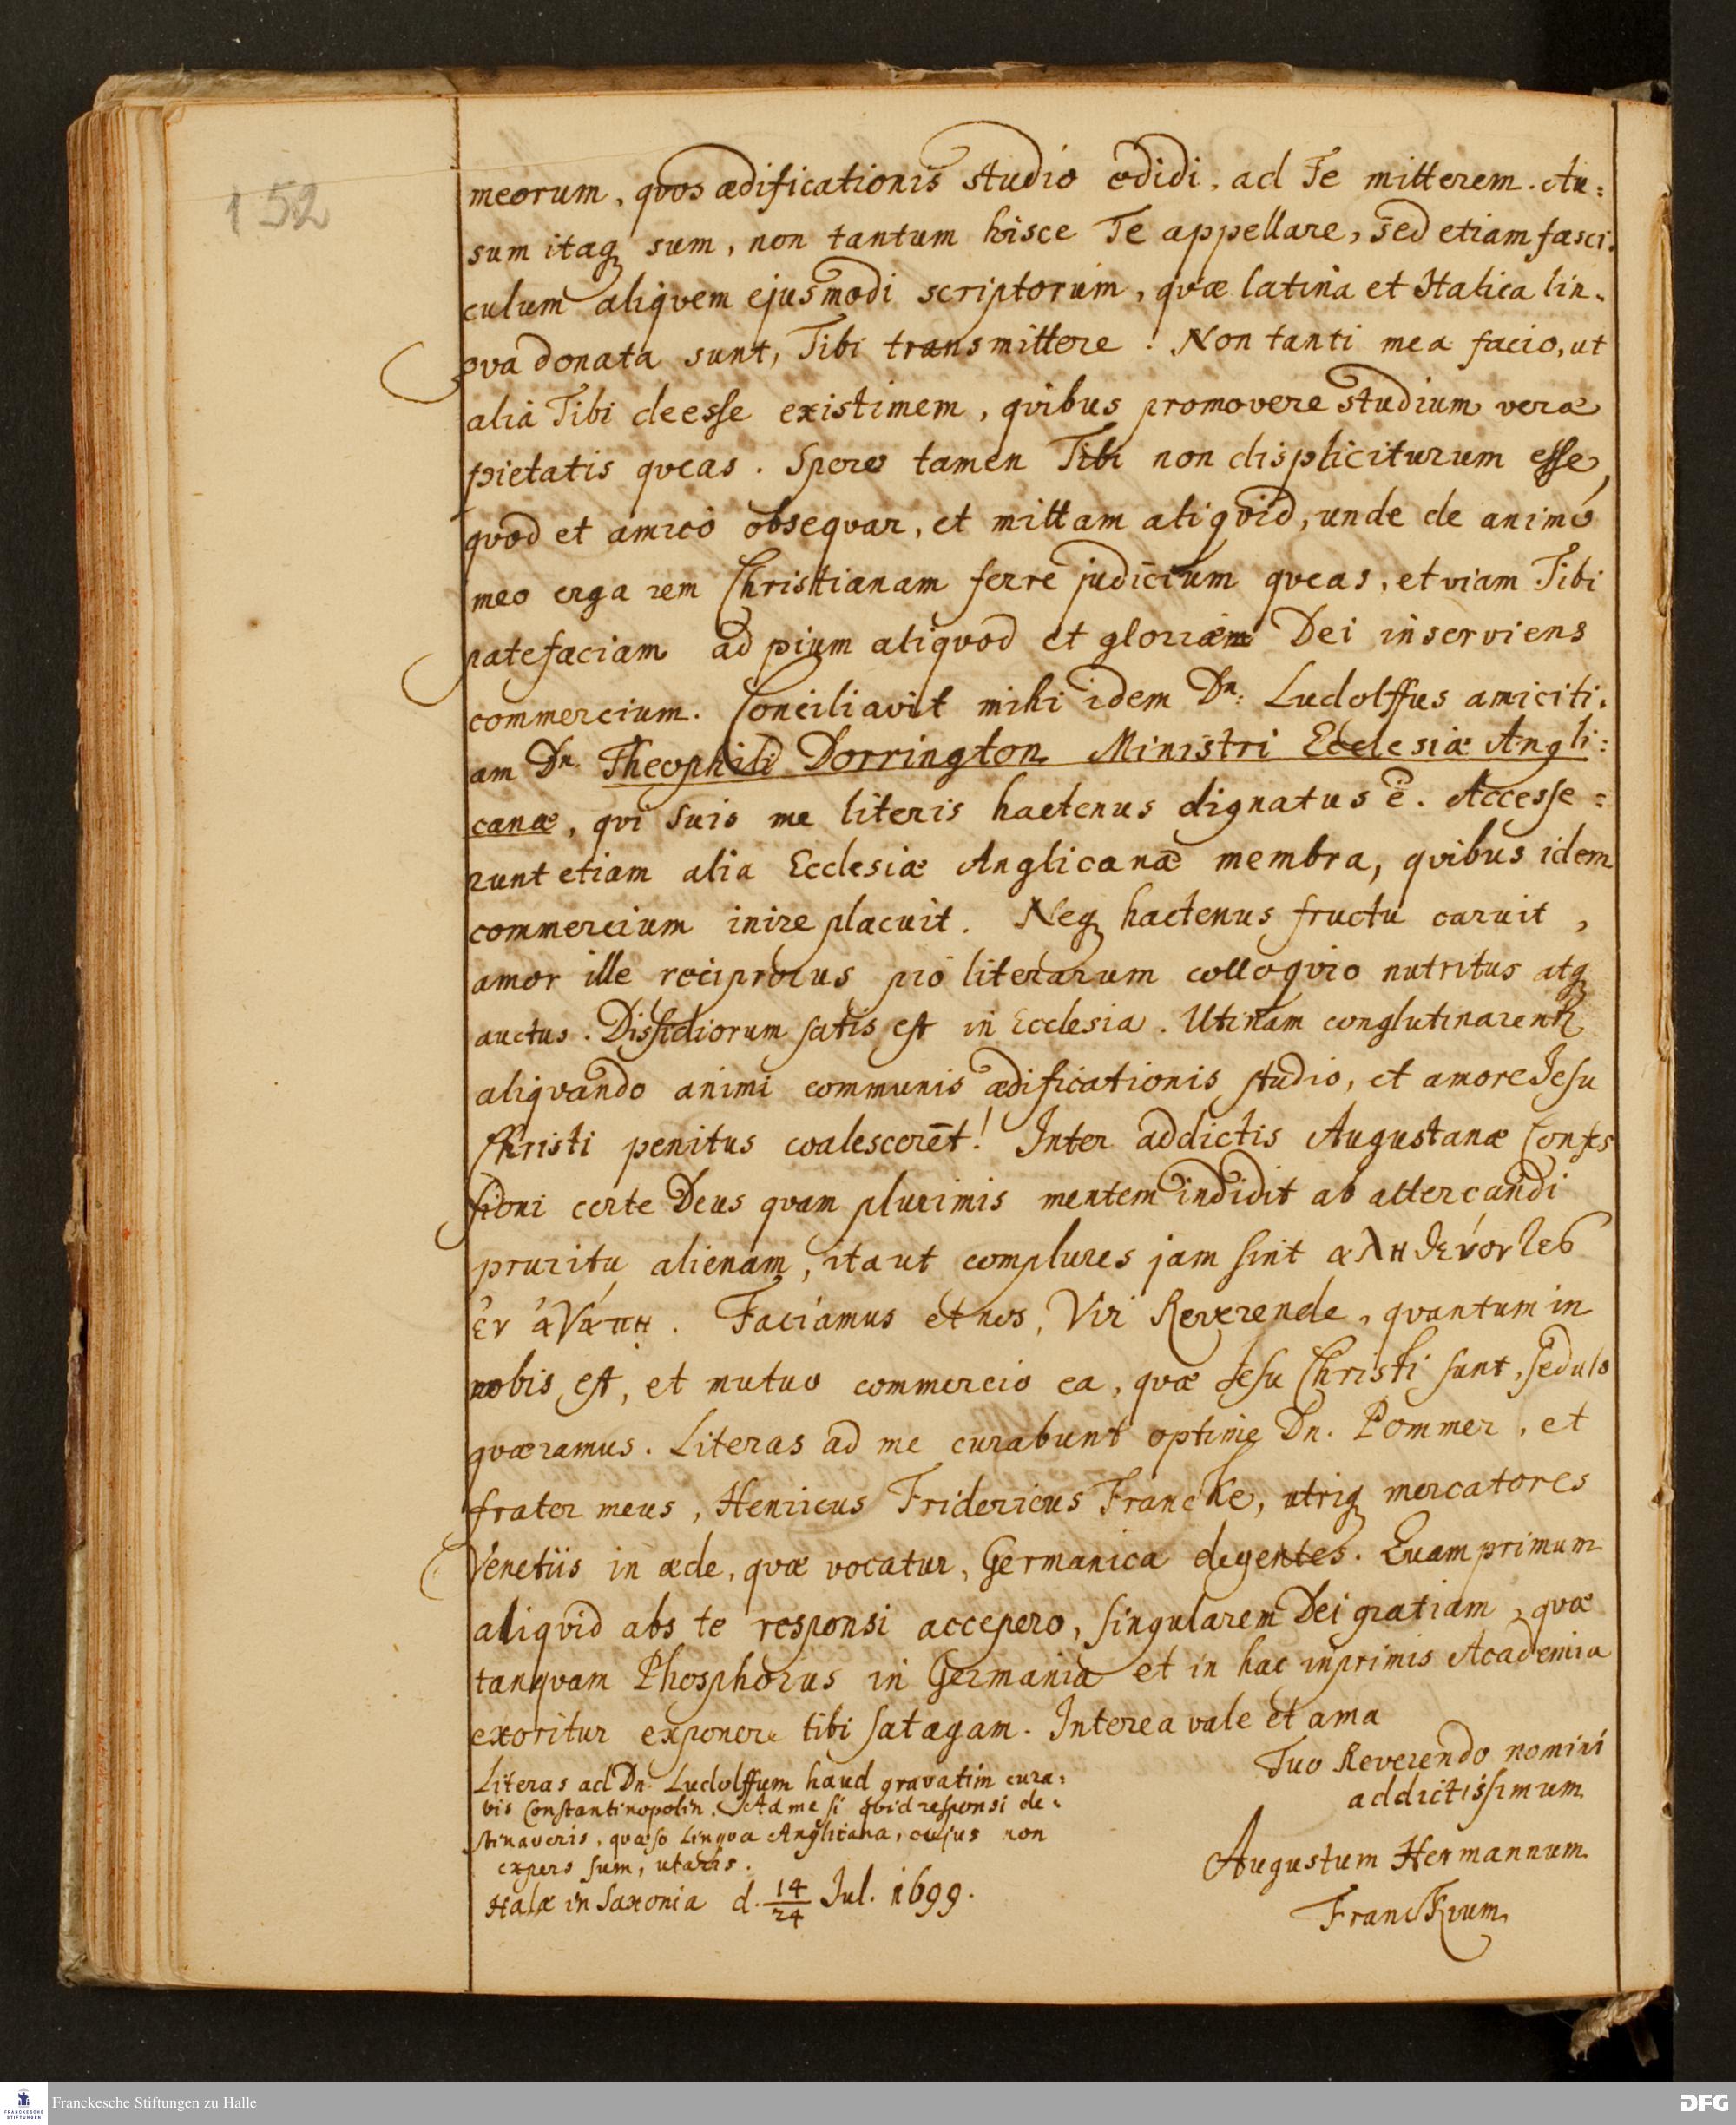 152
meorum, qvos ædificationis studio edidi, ad Te mitterem. Au=
sum itaq sum, non tantum hisce Te appellare, sed etiam fasci.
culum aliqvem ejusmodi scriptorum, qvæ latina et Italica lin.
gva donata sunt, Tibi transmittere. Non tanti mea facio, ut
alia Tibi deesse existimem, qvibus promovere studium veræ
pietatis qveas. Spero tamen Tibi non displiciturum esse,
qvod et amico obseqvar, et mittam aliqvid, unde de animo
meo erga rem Christianam ferre judicium qveas, et viam Tibi
patefaciam ad pium aliqvod et gloriæ Dei inserviens
commercium. Conciliavit mihi idem Dn: Ludolffus amiciti.
am Dn. Theophili Dorrington Ministri Ecclesiæ Angli=
canæ, qvi suis me literis hactenus dignatus ē. Accesse=
runt etiam alia Ecclesiæ Anglicanæ membra, qvibus idem
commercium inire placuit. Neq hactenus fructu caruit,
amor ille reciprocus pio literarum colloqvio nutritus atq
auctus. Dissidiorum satis est in Ecclesia. Utinam conglutinarentr
aliqvando animi communis ædificationis studio, et amore Jesu
Christi penitus coalescerēt! Inter addictis Augustanæ Confes
sioni certe Deus qvam plurimis mentem indidit ab altercandi
pruritu alienam, ita ut complures jam sint αληθεύοντες
ἐν ἀγάπη. Faciamus et nos, Vir Reverende, qvantum in
nobis est, et mutuo commercio ea, qvæ Jesu Christi sunt, sedulo
qværamus. Literas ad me curabunt optime Dn. Pommer, et
frater meus, Henricus Fridericus Francke, utriq mercatores
Venetiis in æde, qvæ vocatur, Germanica degentes. Quam primum
aliqvid abs te responsi accepero, singularem Dei gratiam, qvæ
tanqvam Phosphorus in Germania et in hac inprimis Academia
exoritur exponere tibi satagam. Interea vale et ama
Tuo Reverendo nomini
addictissimum
Augustum Hermannum
Franckvum
Literas ad Dn. Ludolffum haud gravatim cura=
bis Constantinopolin. Ad me si qvid responsi de=
stinaveris, qvæso Lingva Anglicana, cujus non
expers sum, utaris.
Halæ in Saxonia d. 14/24 Jul. 1699.
Franckesche Stiftungen zu Halle
FRANCKESCHE STIFTUNGEN
DFG